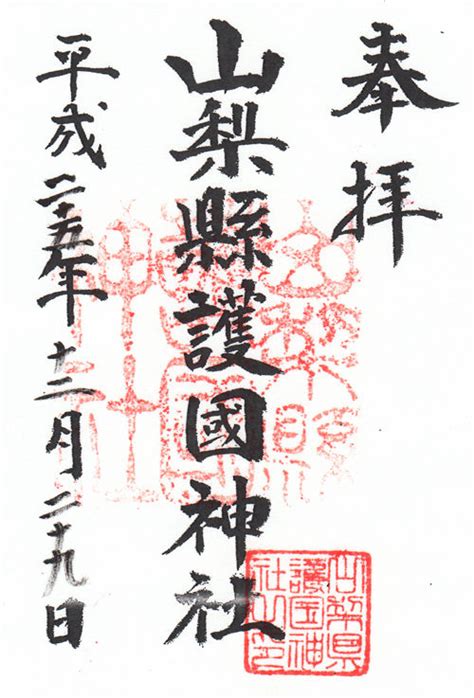 奉拝
山梨縣護國神社
平成二十五年十二月二十九日
山梨県
護国神
社之印